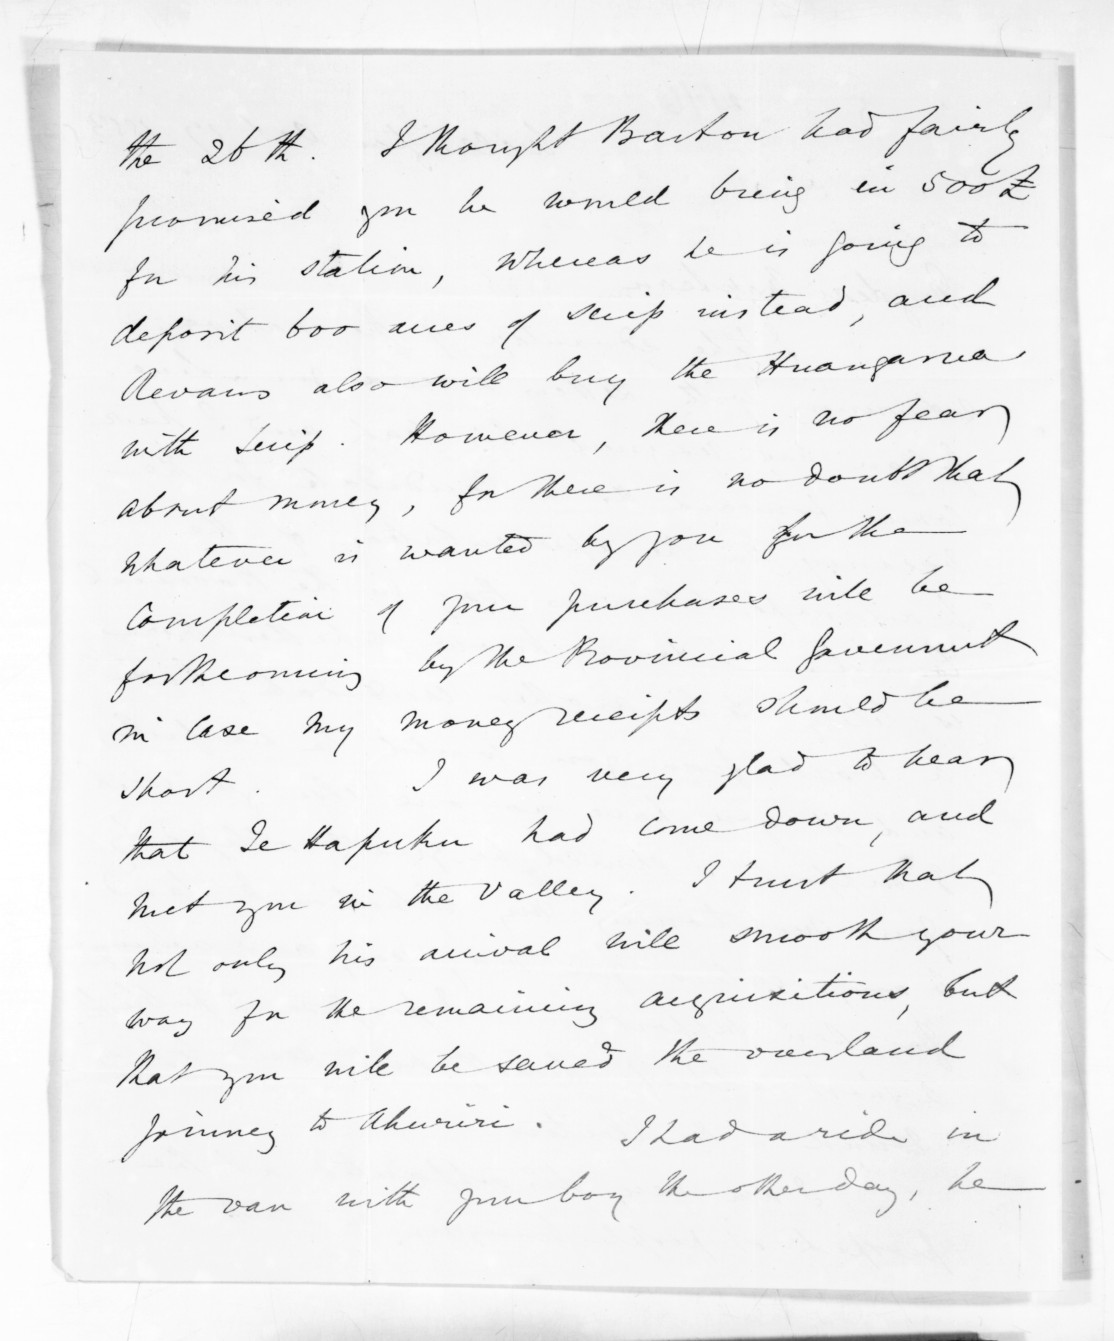 the 26th. I thought Barton had fairly
promised you he would bring in 500£
for his station, whereas he is going to
deposit 600 acres of scrip instead, and
Revans also will buy the Huangarua
with scrip. However, there is no fear
about money, for there is no doubt that
whatever is wanted by you for the
completion of your purchases will be
forthcoming by the Provincial Government
in case my money receipts should be
short. I was very glad to hear
that Te Hapuku had come down, and
met you in the valley. I trust that
not only his arrival will smooth your
way for the remaining acquisitions, but
that you will be saved the overland
journey to Ahuriri. I had a ride in
the van with your boy the other day, he